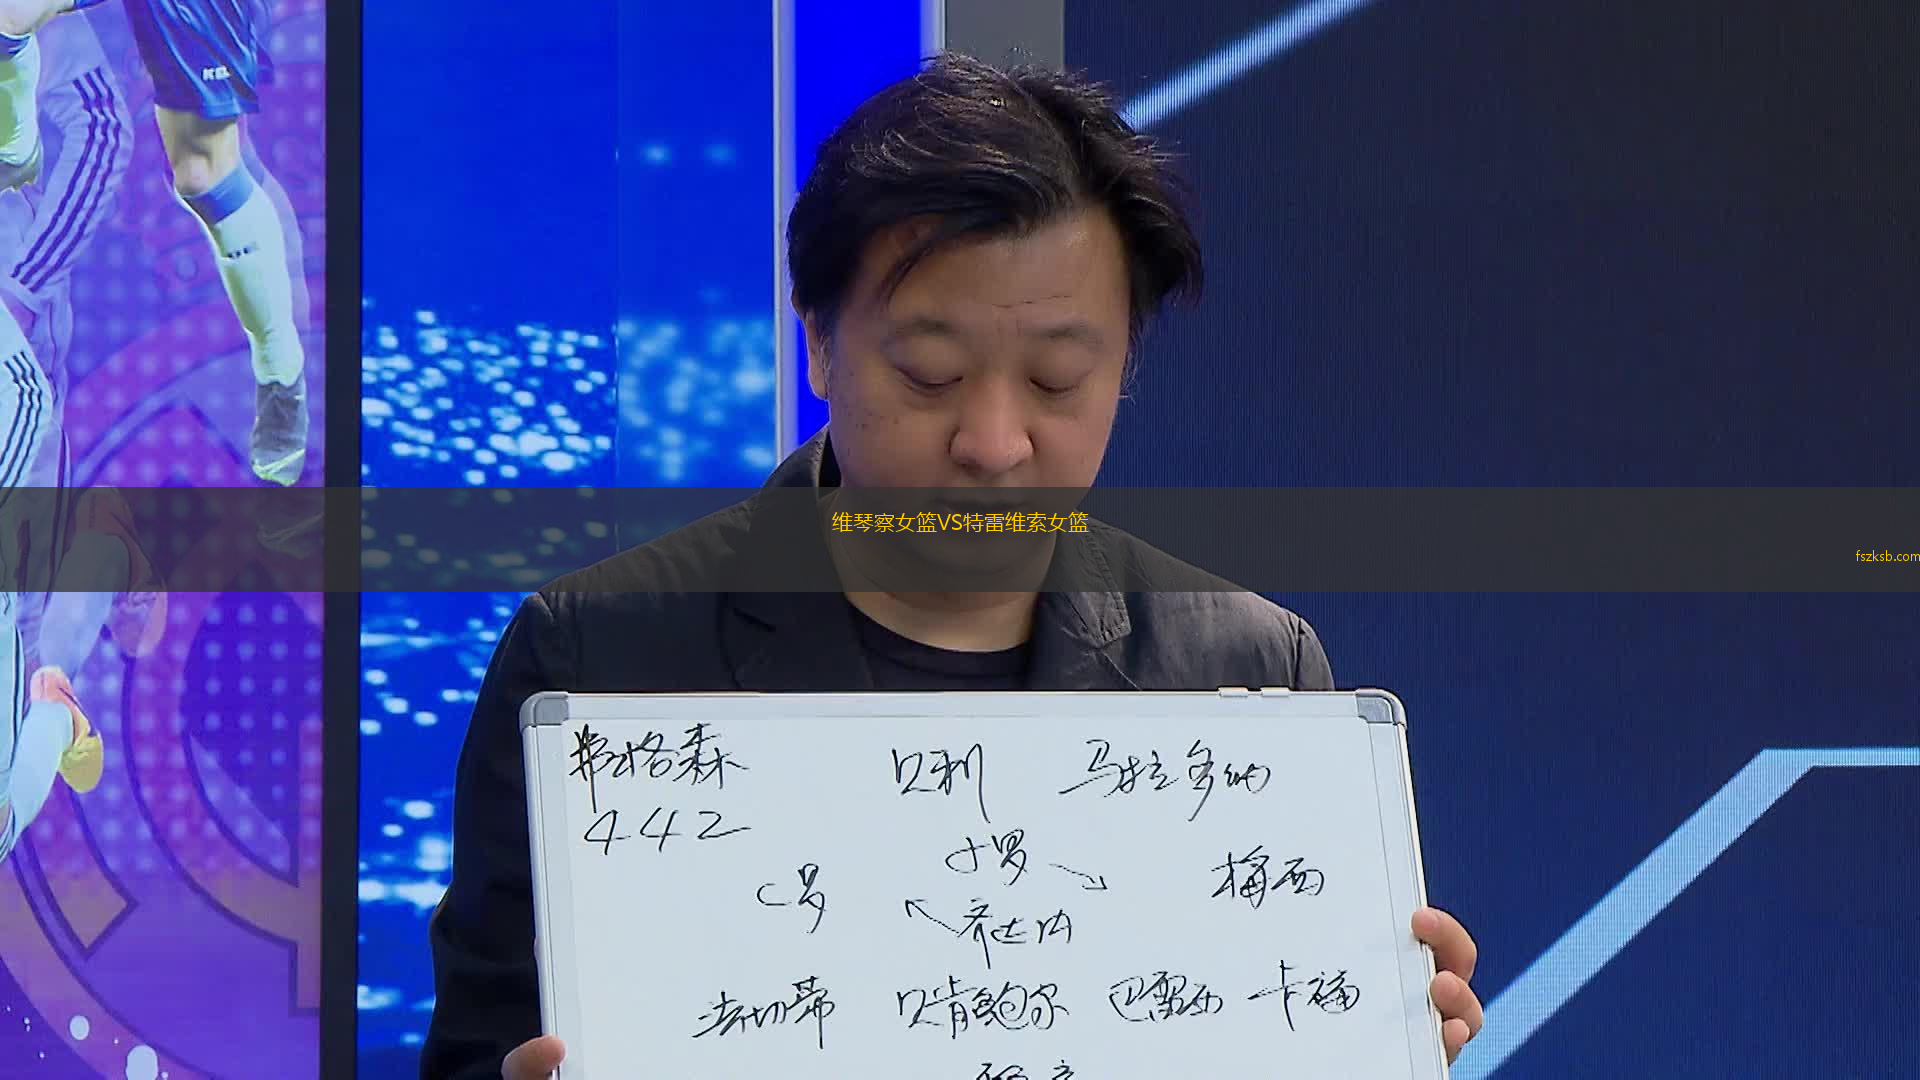 KEL
维琴察女篮VS特雷维索女篮
fszksb.com
弗格森 贝利 马拉多纳
442
小罗
C罗 梅西
齐达内
法切蒂 贝肯鲍尔 巴雷西 卡福